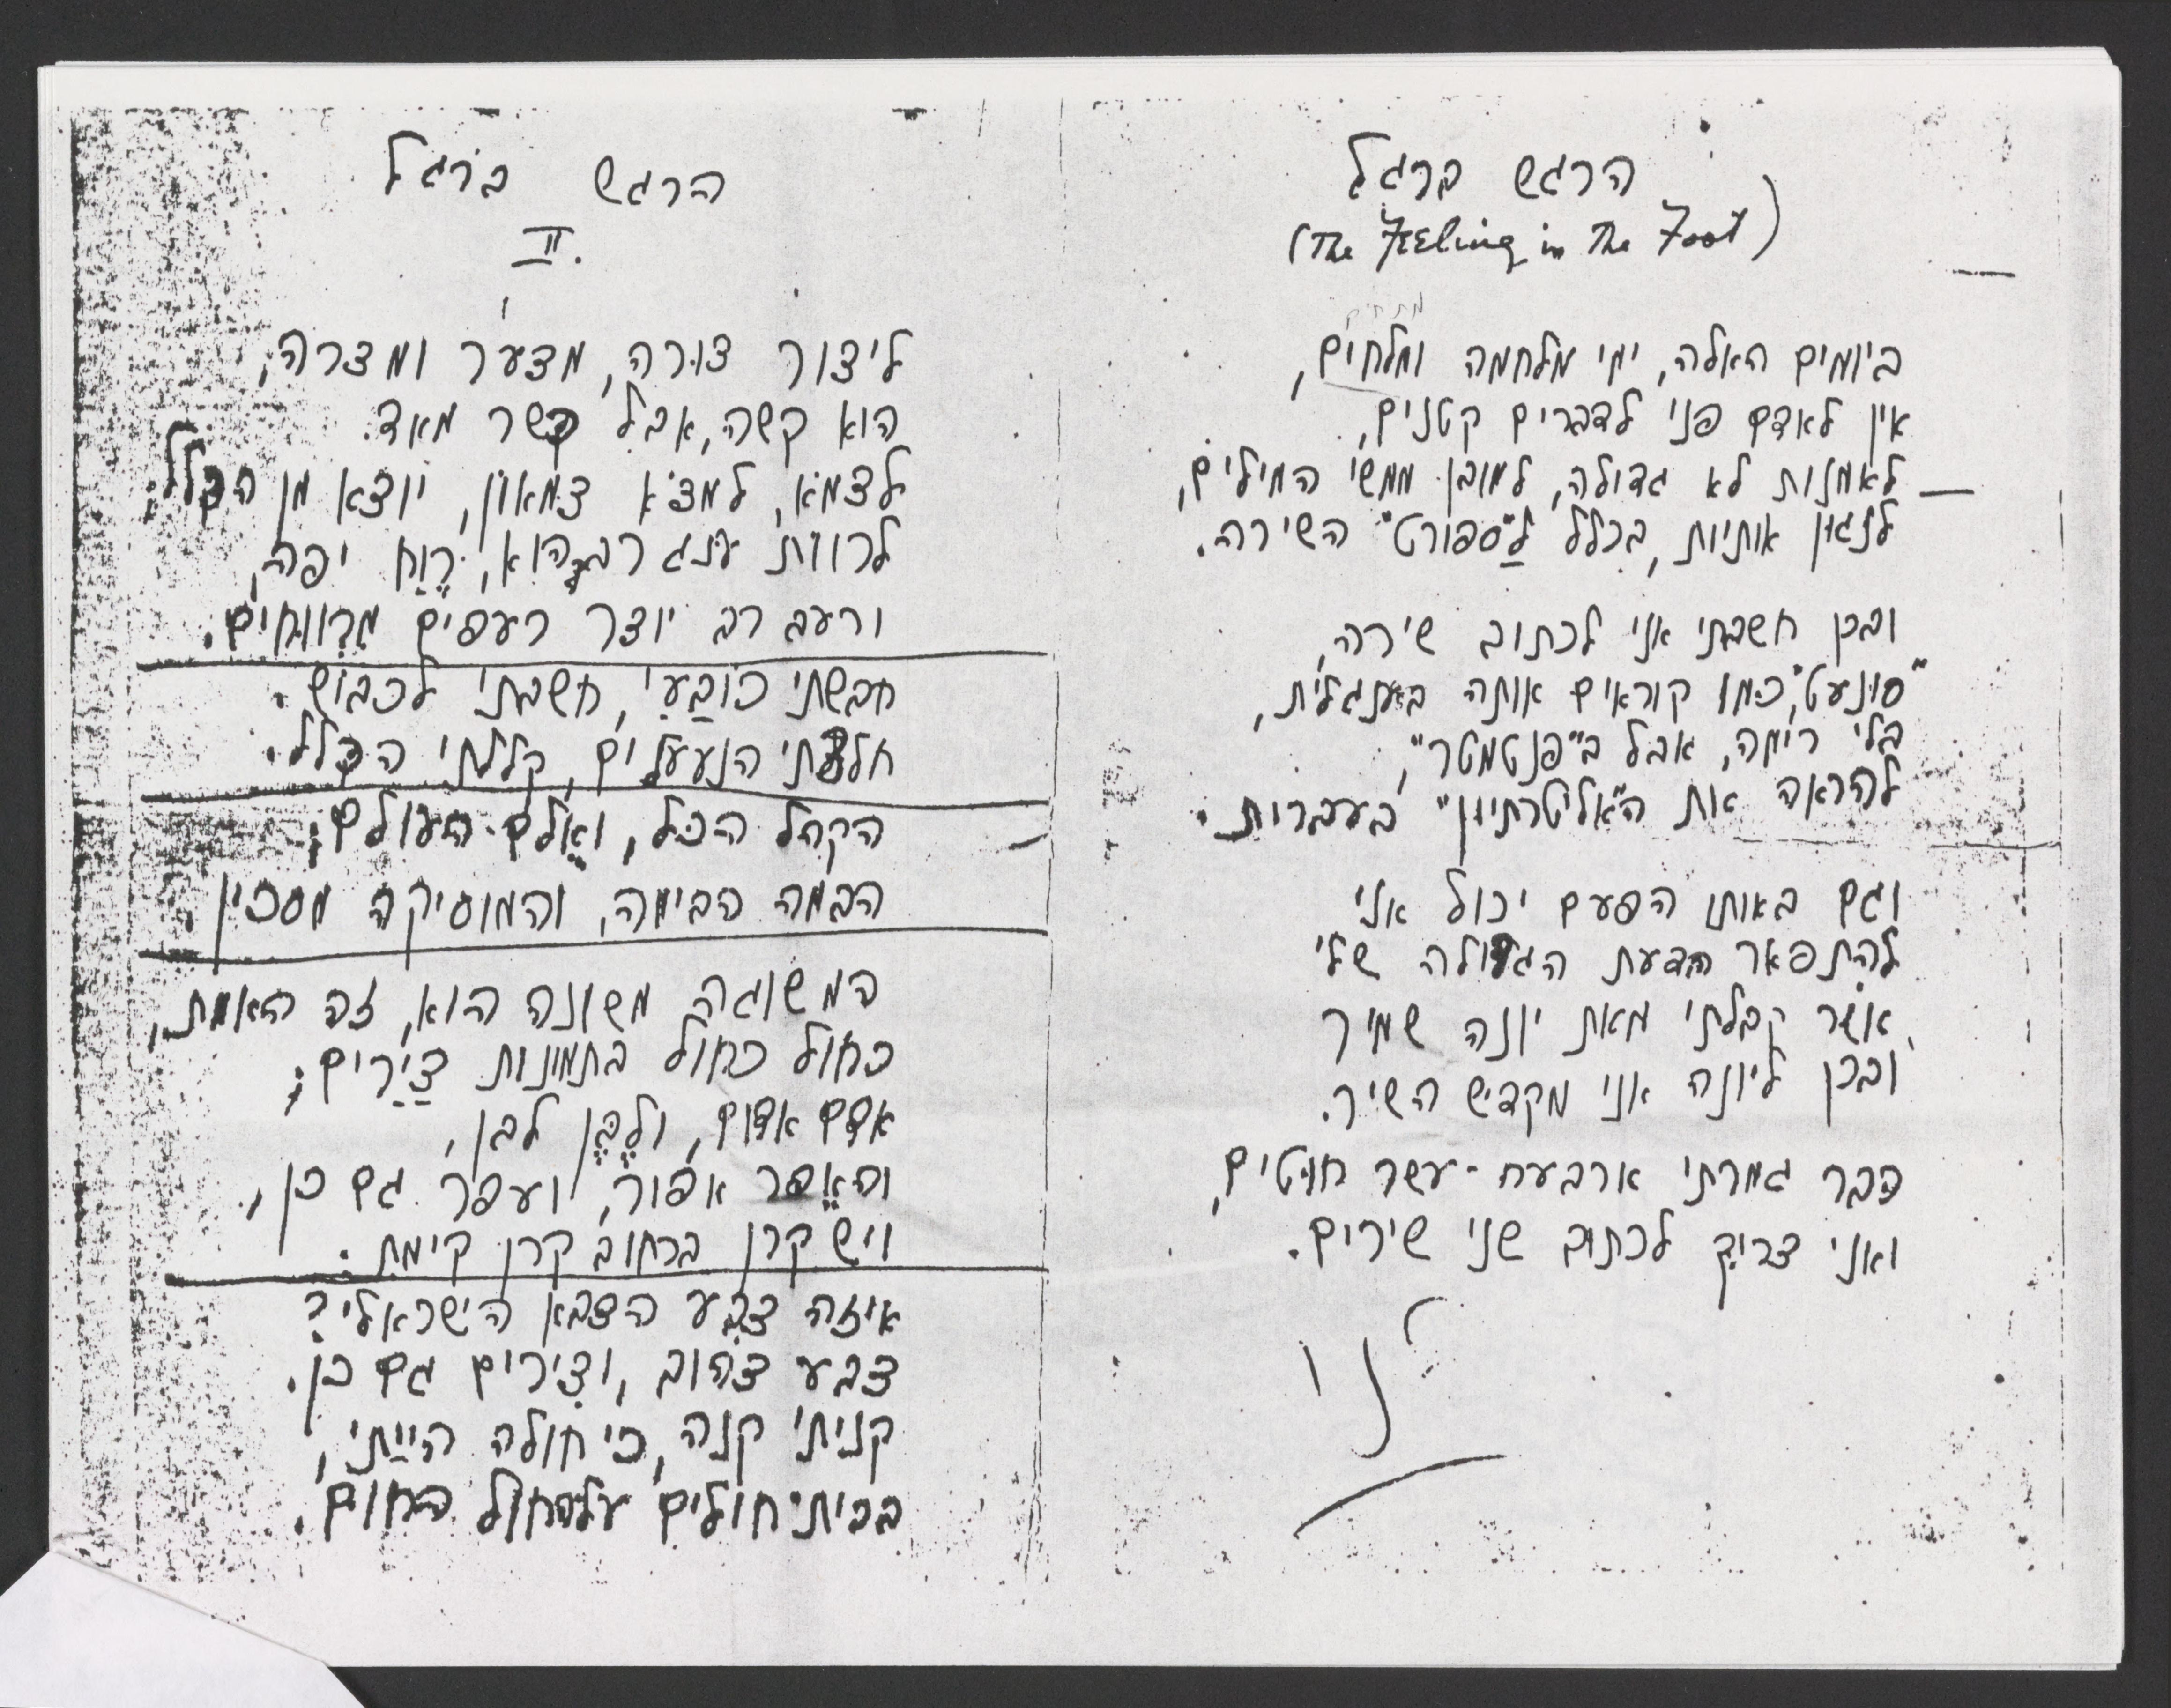 הרגש ברגל
(The Feeling in The Foot)
ביומים האלה, ימי מלחמה ומלחים,
אין לאדם פני לדברים קטנים,
לאמנות לא גדולה, למובן ממשי המילים,
לנגון אותיות, בכלל לַ"ספורט" השירה.
ובכן חשבתי אני לכתוב שירה,
"סונעט", כמו קוראים אותה באנגלית,
בלי רימה, אבל ב"פנטמטר",
להראה את ה"אליטרתיון" בעברית.
וגם באותו הפעם יכול אני
להתפאר הדעת הגדולה שלי
אשר קבלתי מאת יונה שמיר
ובכן ליונה אני מקדיש השיר.
כבר גמרתי ארבעה-עשר חוטים,
ואני צריך לכתוב שני שירים.
הרגש ברגל
II.
ליצור צורה, מצער ומצרה,
הוא קשה, אבל כשר מאד.
לצמא, למצא צמאון, יוצא מן הכלל;
לרוות ענג רב הוא, רֶוַח יפה,
ורעב רב יוצר רעפים מרווחים.
חבשתי כובַעי, חשבתי לכבוש.
חלצתי הנעעלים, קללתי הכלל.
הקהל הכל, ואֻלם העולם;
הבמה הבימה, והמוסיקה מסכין
המשוגה משונה הוא, זה האמת,
כחול כחול בתמונות צַיָרים;
אדם אדום, ולֶבֶן לבן,
והאֵפר אפור, ועפר גם כן,
ויש קרן ברחוב קרן קימת.
איזה צבע הצבא הישראלי?
צבע צהוב, וצירים גם כן.
קניתי קנה, כי חולה הייַתי,
בבית חולים על החול החום.